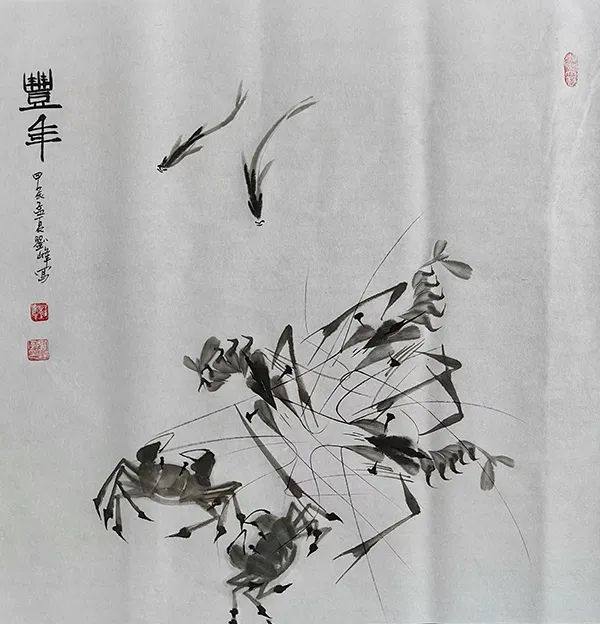 豐年
甲辰孟夏劉峰寫